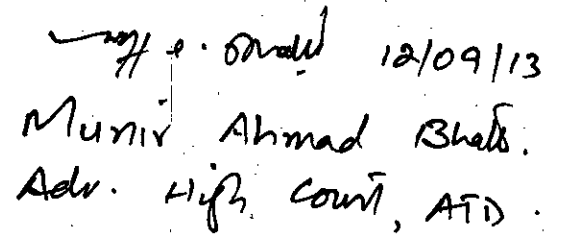 12/09/13
Munir Ahmad Bhatti.
Adv. High Court, ATD.